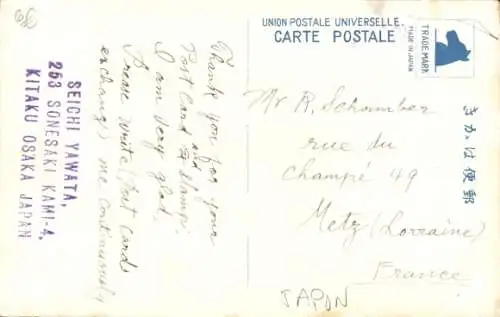 UNION POSTALE UNIVERSELLE.
CARTE POSTALE
TRADE MARK
MADE IN JAPAN
きかは便郵
Mr R. Schamber
rue du
Champé 49
Metz (Lorraine)
France
JAPON
Thanke you for your
Post Card and Stamp.
I am very glad.
Please write (Post Cards
exchange) me continuously
SEICHI YAWATA,
253 SONESAKI KAMI-4,
KITAKU OSAKA JAPAN